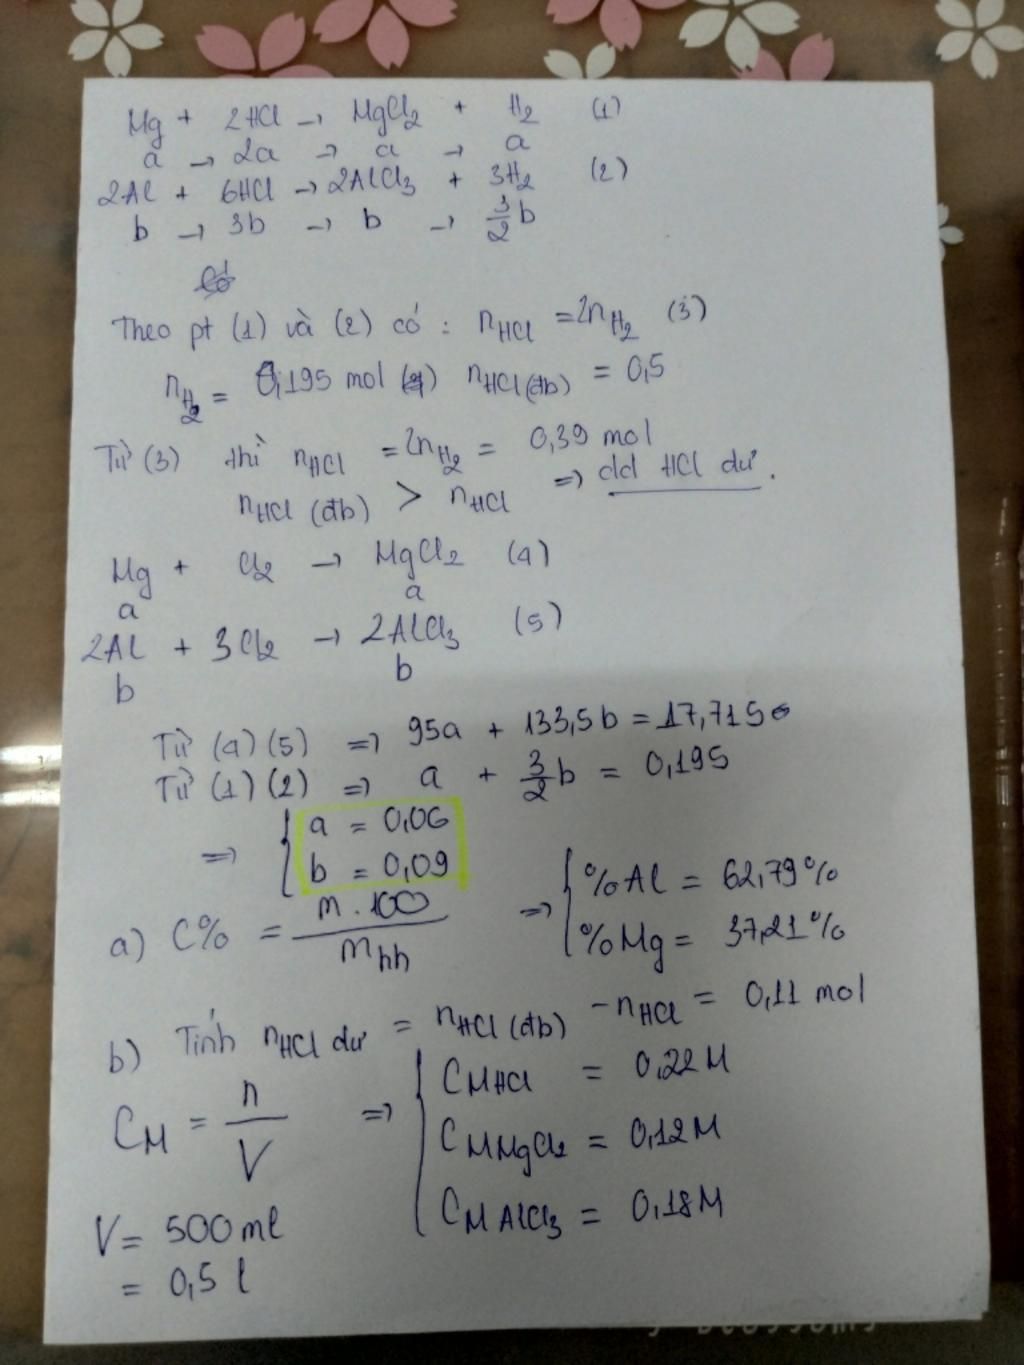 Mg + 2HCl → MgCl2 + H2 (1)
a → 2a → a → a
2Al + 6HCl → 2AlCl3 + 3H2 (2)
b → 3b → b → 3/2 b
Theo pt (1) và (2) có : nHCl = 2nH2 (3)
nH2 = 0,195 mol nHCl(đb) = 0,5
Từ (3) thì nHCl = 2nH2 = 0,39 mol
nHCl (đb) > nHCl => dd HCl dư.
Mg + Cl2 → MgCl2 (4)
a a
2Al + 3Cl2 → 2AlCl3 (5)
b b
Từ (4) (5) => 95a + 133,5b = 17,715
Từ (1) (2) => a + 3/2 b = 0,195
=> { a = 0,06
b = 0,09
a) C% = m.100 / mhh => { %Al = 62,79%
%Mg = 37,21%
b) Tính nHCl dư = nHCl (đb) - nHCl = 0,11 mol
CM = n / V => { CM HCl = 0,22M
CM MgCl2 = 0,12M
CM AlCl3 = 0,18M
V = 500ml
= 0,5 l